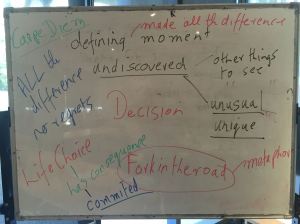 Carpe Diem
made all the difference
defining moment
undiscovered
other things
to see
ALL the
difference
no regrets
unusual
unique
Decision
Life Choice
has consequence
commited
Fork in the road
metaphor